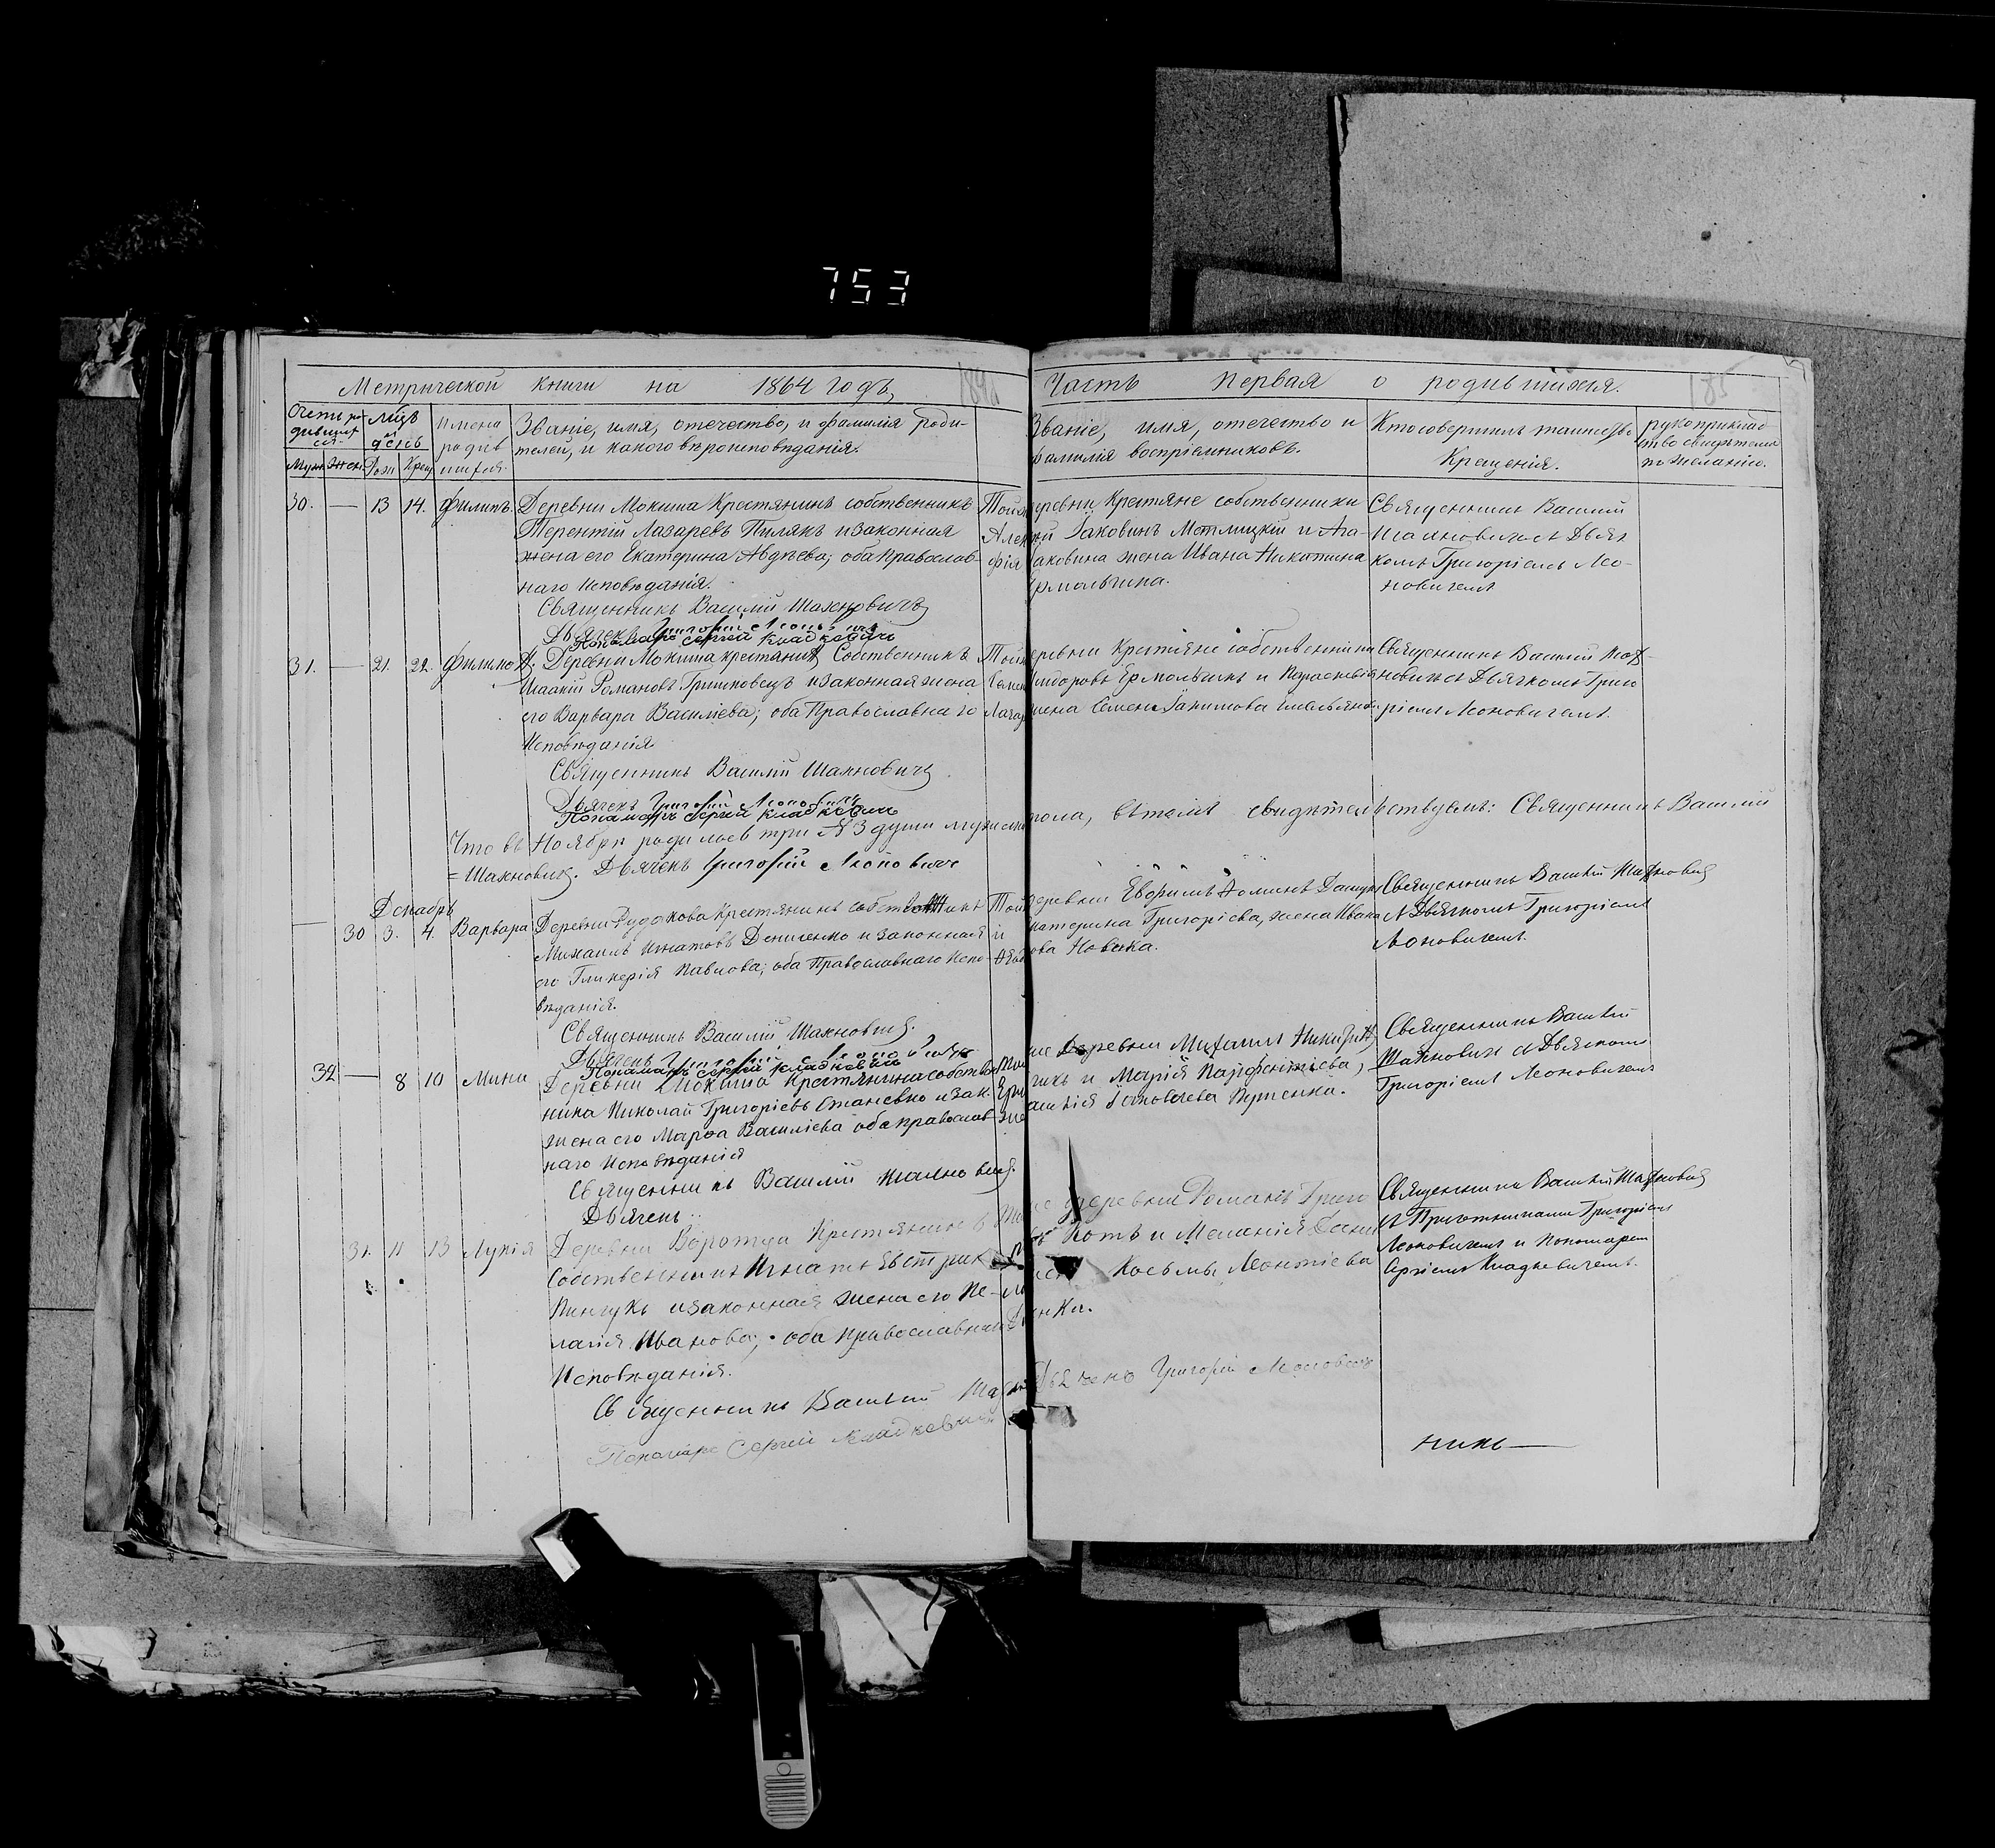 753
Метрической книги на 1864 годъ,
Часть первая о родившихся.
185
Счетъ родившихся.
Муж. Жен.
Мѣсяцъ и день
Рож. Крещ.
Имена родившихся.
Званіе, имя, отечество, и фамилія роди-
телей, и какого вѣроисповѣданія.
Званіе, имя, отечество и
фамилія воспріемниковъ.
Кто совершилъ таинство
Крещенія.
рукоприклад
ство свидѣтелей
по желанію.
30. — 13 14. Филипъ.
Деревни Мокиша Крестянинъ собственникъ
Терентій Лазаревъ Пилякъ и законная
жена его Екатерина Авдѣева; оба Православ-
наго Исповѣданія.
Священникъ Василій Шахновичъ
Дьячекъ Григорій Леоновичъ
Пономарь Сергій Кладкевичъ
Той деревни Крестяне собственники
Алексѣй Іаковинъ Мотлицкій и Ага-
фія Іаковина жена Ивана Никитина
Ермольчина.
Священникъ Василий
Шахновичъ съ Дьяч
комъ Григоріемъ Лео-
новичемъ
31. — 21. 22. Филимонъ.
Деревни Мокиша крестянинъ Собственникъ
Исаакій Романовъ Гришковецъ и законная жена
его Варвара Василіева; оба Православнаго
Исповѣданія.
Священникъ Василій Шахновичъ
Дьячекъ Григорій Леоновичъ
Пономарь Сергій Кладкевичъ
Той деревни Крестяне собственники
жена Семена
Священникъ Василій Шах-
новичъ съ Дьячкомъ Григо
ріемъ Леоновичемъ.
Что въ Ноябрѣ родилось три № 3 души мужеска пола, вътомъ свидѣтельствуемъ: Священникъ Василій
=Шахновичъ. Дьячекъ Григорій Леоновичъ
Декабрь
— 30 3. 4. Варвара
Деревни Рудакова Крестянинъ собственникъ
Михаилъ Игнатовъ Денисенко и законная
его Гликерія Павлова; оба Православнаго Испо-
вѣданія.
Священникъ Василій Шахновичъ.
Дьячекъ Григорій Леоновичъ
Пономарь Сергій Кладкевичъ
Той деревни Евфимъ Фоминъ
и Екатерина Григорієва, жена Ивана
Новика.
Священникъ Василій Шахновичъ
съ Дьячкомъ Григоріемъ
Леоновичемъ.
32 — 8 10 Мина
Деревни Мокиша Крестянина собствен
ника Николай Григоріевъ Станевко и зак.
жена его Марѳа Василіева оба православ
наго Исповѣданія
Священникъ Василій Шахновичъ.
Дьячекъ
деревни Михаилъ Никитинъ
и Марія Парфентіева,
Священникъ Василій
Шахновичъ съ Дьячкомъ
Григоріемъ Леоновичемъ
31. 11 13 Лукія
Деревни Воротца Крестянинъ
Собственникъ Игнатъ
Пинчукъ и законная жена его Пе-
лагія Иванова; оба православнаго
Исповѣданія.
Священникъ Василій
Пономарь Сергій Кладкевичъ
деревни Романъ Григо
Котъ и Меланія
Косьмы Леонтіева
Дьячекъ Григорій Леоновичъ
Священникъ Василій Шахновичъ
съ Причетниками Григоріемъ
Леоновичемъ и пономаремъ
Сергіемъ Кладкевичемъ.
никъ —